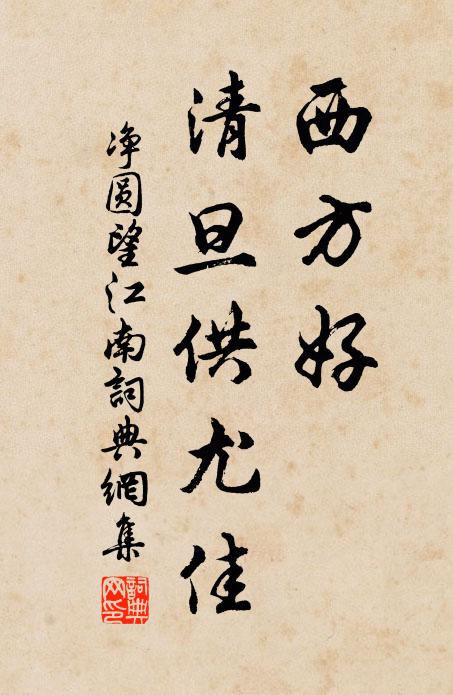 西方好
清旦供尤佳
净圆望江南詞典網集
詞典网印